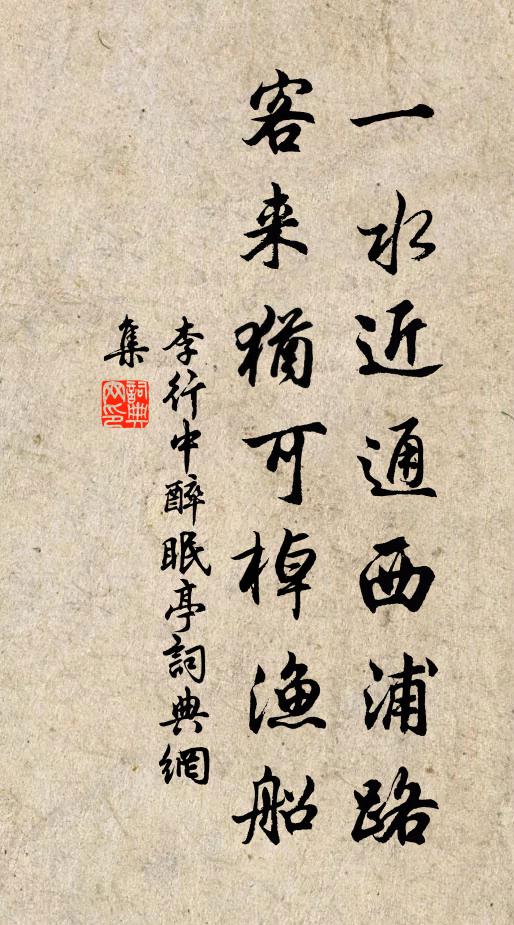 一水近通西浦路
客来猶可棹渔船
李行中醉眠亭詞典網
集
詞典
网印